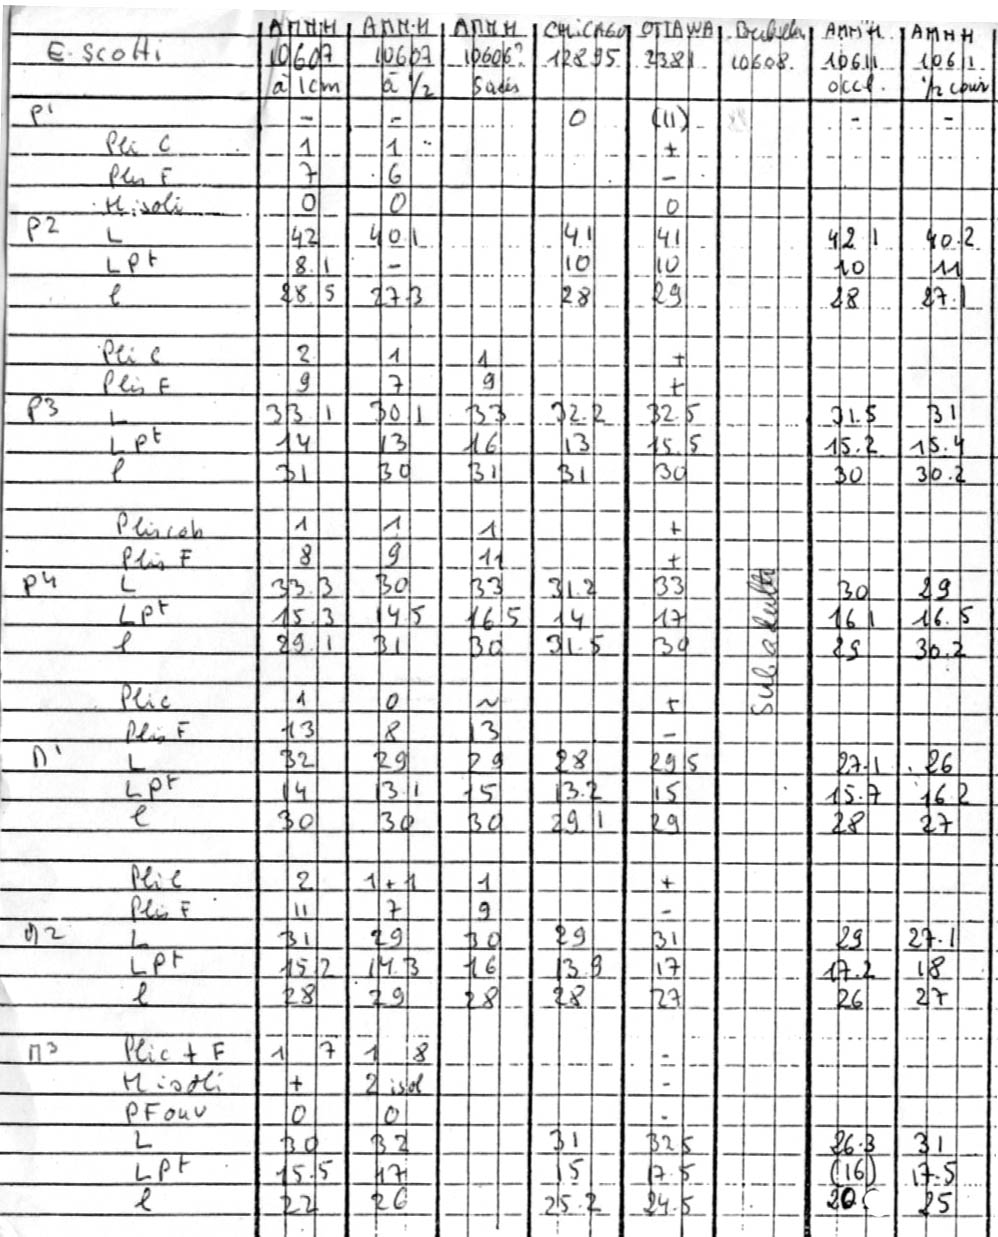 AMNH AMNH AMNH CHICAGO OTTAWA AMNH AMNH
E. Scotti 10607 10607 10606? 12895 2381 10608 10611 10611
à 1cm à 1/2 5 occl.
P1 - - 0 (11) - -
Pli C 1 1 +
Plis F 7 6 -
H. isoli 0 0 0
P2 L 42 40.1 41 41 42.1 40.2
LPt 8.1 - 10 10 10 11
l 28.5 27.3 28 29 28 27.1
Pli C 2 1 1 +
Plis F 9 7 9 +
P3 L 33.1 30.1 33 32.2 32.5 31.5 31
LPt 14 13 16 13 15.5 15.2 15.4
l 31 30 31 31 30 30 30.2
1 1 1 +
Plis F 8 9 11 +
P4 L 33.3 30 33 31.2 33 30 29
LPt 15.3 14.5 16.5 14 17 16.1 16.5
l 29.1 31 30 31.5 30 29 30.2
Subadulte
Pli C 1 0 ~ +
Plis F 13 8 13 -
M1 L 32 29 29 28 29.5 27.1 26
LPt 14 13.1 15 13.2 15 15.7 16.2
l 30 30 30 29.1 29 28 27
Pli C 2 1+1 1 +
Plis F 11 7 9 -
M2 L 31 29 30 29 31 29 27.1
LPt 15.2 14.3 16 13.9 17 17.2 18
l 28 29 28 28 27 26 27
M3 Pli C + F 1 7 1 8 -
H isoli + 2 isol -
PF ouv 0 0 -
L 30 32 31 32.5 26.3 31
LPt 15.5 17 15 17.5 (16) 17.5
l 22 26 25.2 24.5 25